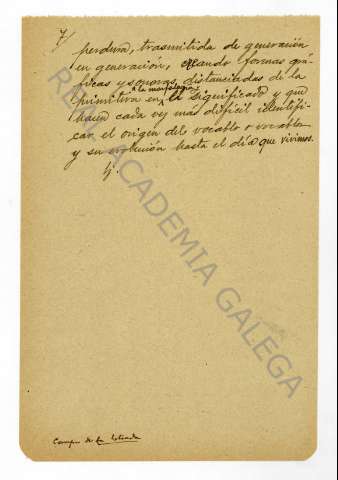 7/
perdura, trasmitida de generación
en generación, creando formas grá-
ficas y sonoras, distanciadas de la
primitiva en a la morfología y significado y que
hacen cada vez mas difícil identifi-
car el origen del vocablo o vocablos
y su evolución hasta el día que vivimos.
Campo de la
REAL ACADEMIA GALEGA